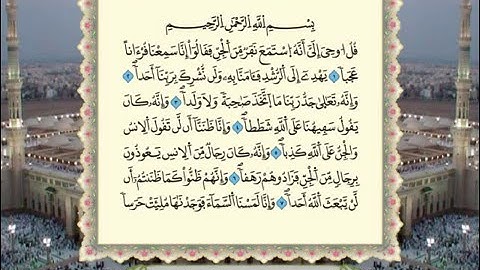 بِسْمِ اللّٰهِ الرَّحْمٰنِ الرَّحِيمِ
قُلْ اُوحِىَ اِلَىَّ اَنَّهُ اسْتَمَعَ نَفَرٌ مِّنَ الْجِنِّ فَقَالُٓوا اِنَّا سَمِعْنَا قُرْءَاناً
عَجَباً ۝١ يَهْدِىٓ اِلَى الرُّشْدِ فَـَٔامَنَّا بِهِ وَلَن نُّشْرِكَ بِرَبِّنَآ اَحَداً ۝٢
وَاِنَّهُ تَعَالٰى جَدُّ رَبِّنَا مَا اتَّخَذَ صَاحِبَةً وَلَا وَلَداً ۝٣ وَاِنَّهُ كَانَ
يَقُولُ سَفِيهُنَا عَلَى اللّٰهِ شَطَطاً ۝٤ وَاِنَّا ظَنَنَّآ أَن لَّن تَقُولَ الْاِنسُ
وَالْجِنُّ عَلَى اللّٰهِ كَذِباً ۝٥ وَاِنَّهُ كَانَ رِجَالٌ مِّنَ الْاِنسِ يَعُوذُونَ
بِرِجَالٍ مِّنَ الْجِنِّ فَزَادُوهُمْ رَهَقاً ۝٦ وَاِنَّهُمْ ظَنُّوا كَمَا ظَنَنتُمُٓ أَن
لَّن يَّبْعَثَ اللّٰهُ أَحَداً ۝٧ وَاِنَّا لَمَسْنَا السَّمَآءَ فَوَجَدْنَٰهَا مُلِئَتْ حَرَساً